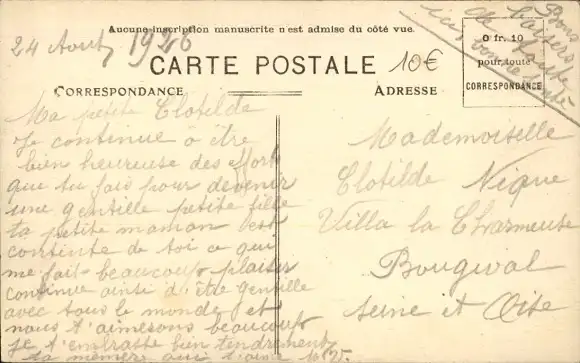 Aucune inscription manuscrite n'est admise du côté vue.
24 Aout 1926
CARTE POSTALE
10€
0 fr. 10
pour toute
CORRESPONDANCE
Bons
baisers
de toute
CORRESPONDANCE
ADRESSE
Ma petite Clotilde
Je continue a être
bien heureuse des effort
que tu fais pour devenir
une gentille petite fille
ta petite maman est
contente de toi ce qui
me fait beaucoup plaisir
continue ainsi d être gentille
avec tous le monde et
nous t'aimerons beaucoup
je t'embrasse bien tendrement
ta mémère qui t'aime
Mademoiselle
Clotilde Nique
Villa la Charmeuse
Bougival
Seine et Oise